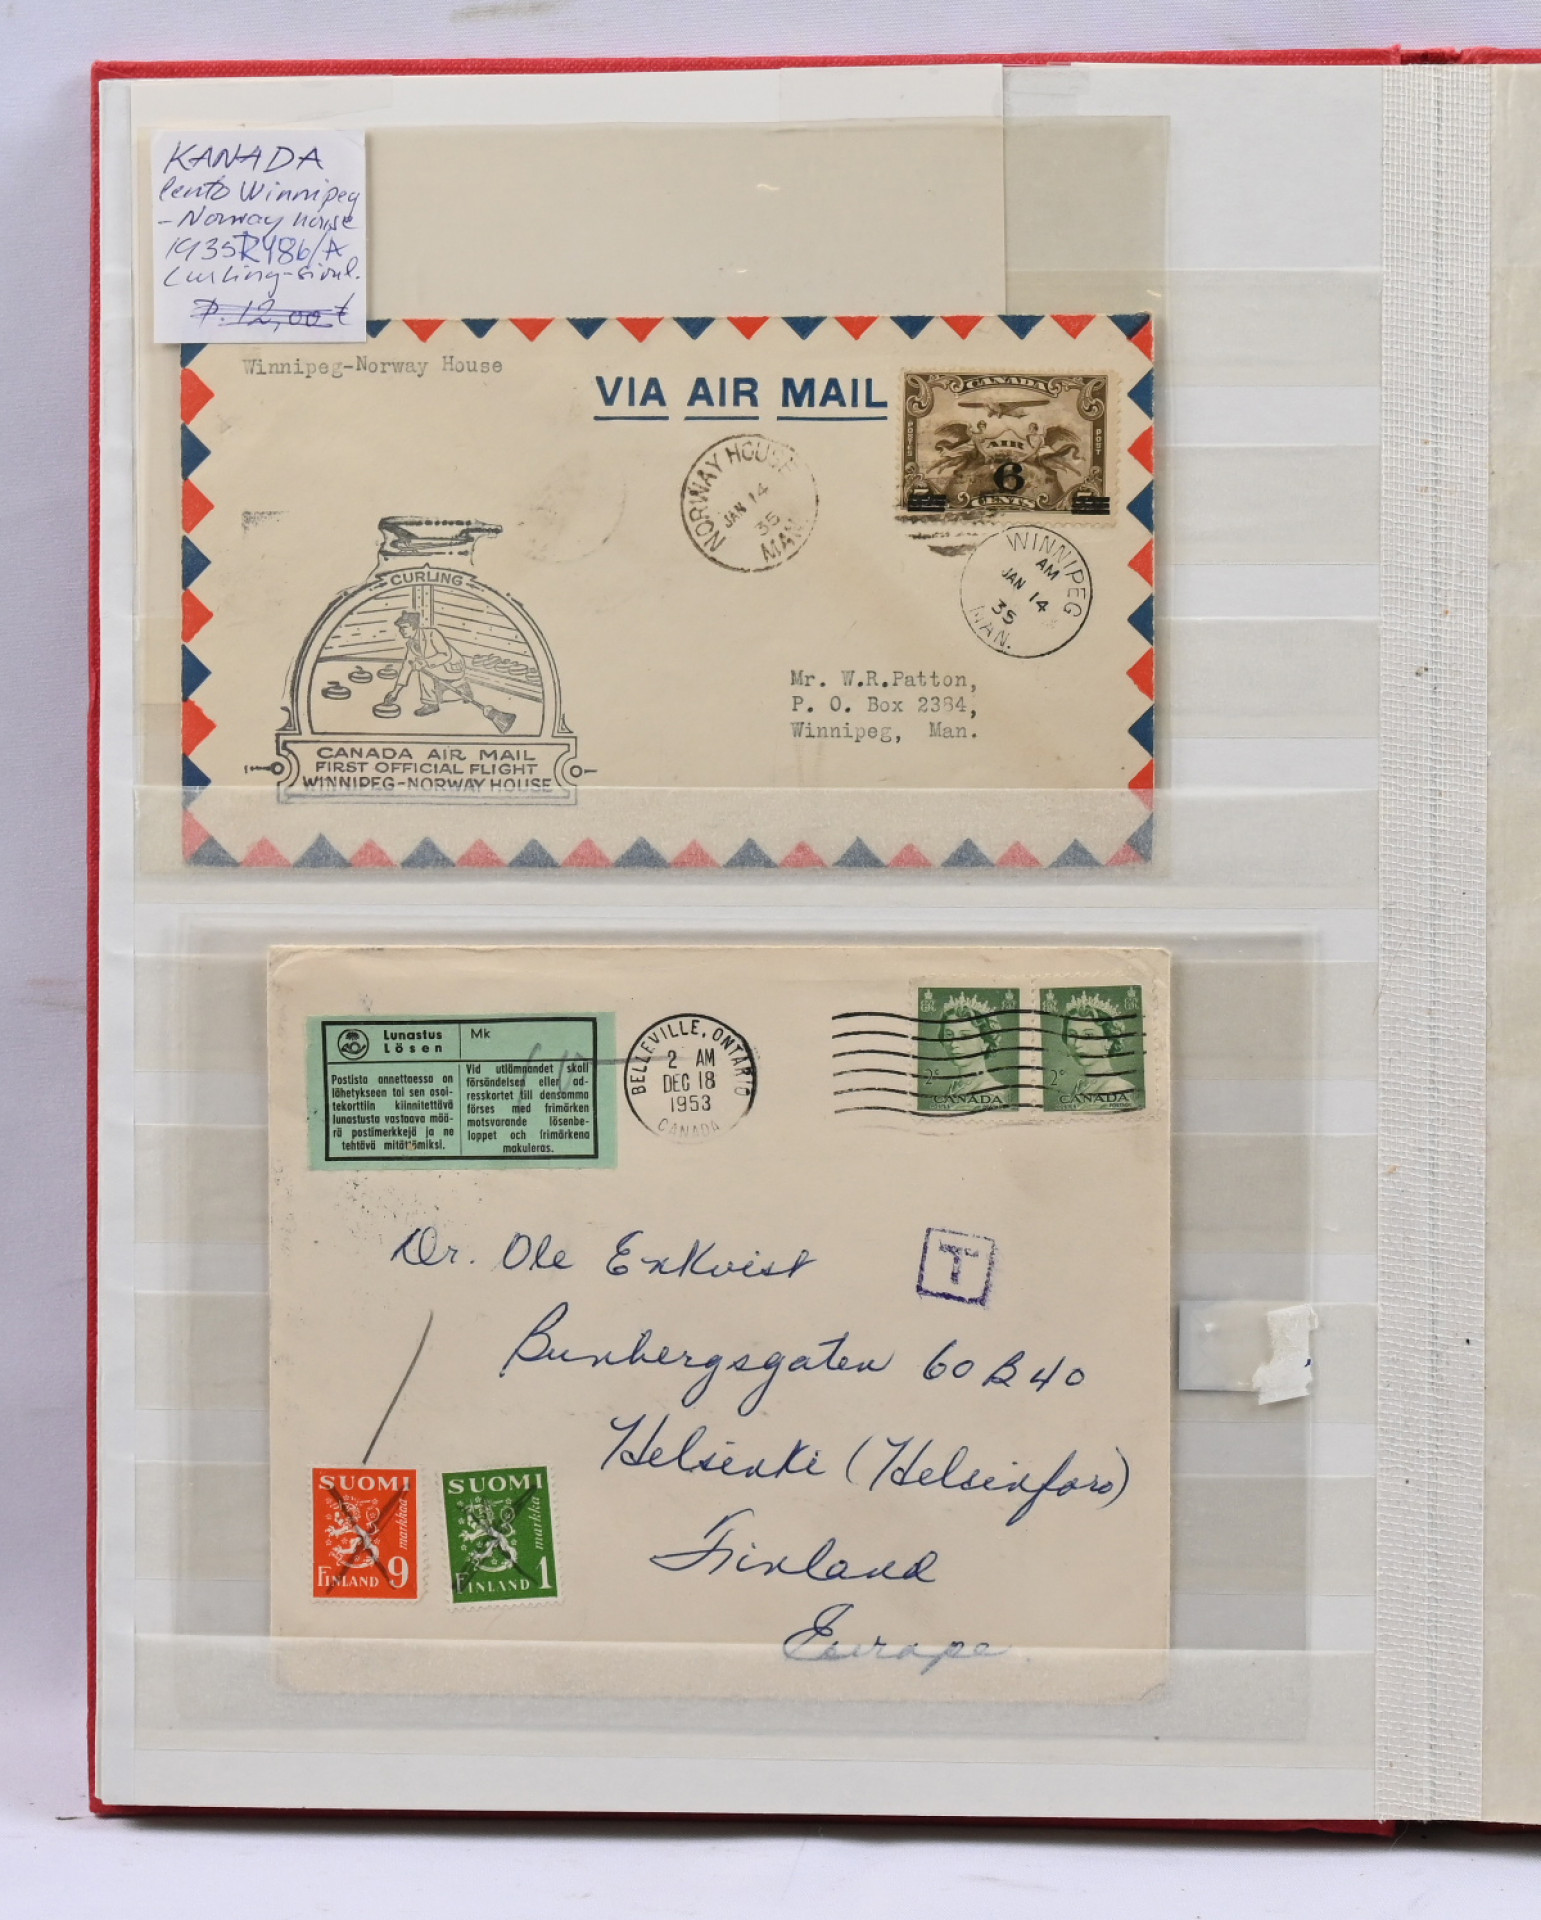 KANADA
lento Winnipeg
- Norway House
1935 R486/A
Curling-
P. 12,00 €
Winnipeg-Norway House
VIA AIR MAIL
CANADA
POSTES POST
AIR
6
CENTS
NORWAY HOUSE
JAN 14
35
MAN.
WINNIPEG
AM
JAN 14
35
MAN.
CURLING
CANADA AIR MAIL
FIRST OFFICIAL FLIGHT
WINNIPEG-NORWAY HOUSE
Mr. W.R.Patton,
P. O. Box 2384,
Winnipeg, Man.
Lunastus
Lösen
Mk
Postista annettaessa on
lähetykseen tai sen osoi-
tekorttiin kiinnitettävä
lunastusta vastaava mää-
rä postimerkkejä ja ne
tehtävä mitättömiksi.
Vid utlämnandet skall
försändelsen eller ad-
resskortet till densamma
förses med frimärken
motsvarande lösenbe-
loppet och frimärkena
makuleras.
BELLEVILLE, ONTARIO
2 AM
DEC 18
1953
CANADA
2c
CANADA
2c
CANADA
T
Dr. Ole Enkvist
Bunbergsgaten 60 B 40
Helsinki (Helsinfors)
Finland
Europe.
SUOMI
markkaa
FINLAND 9
SUOMI
markka
FINLAND 1